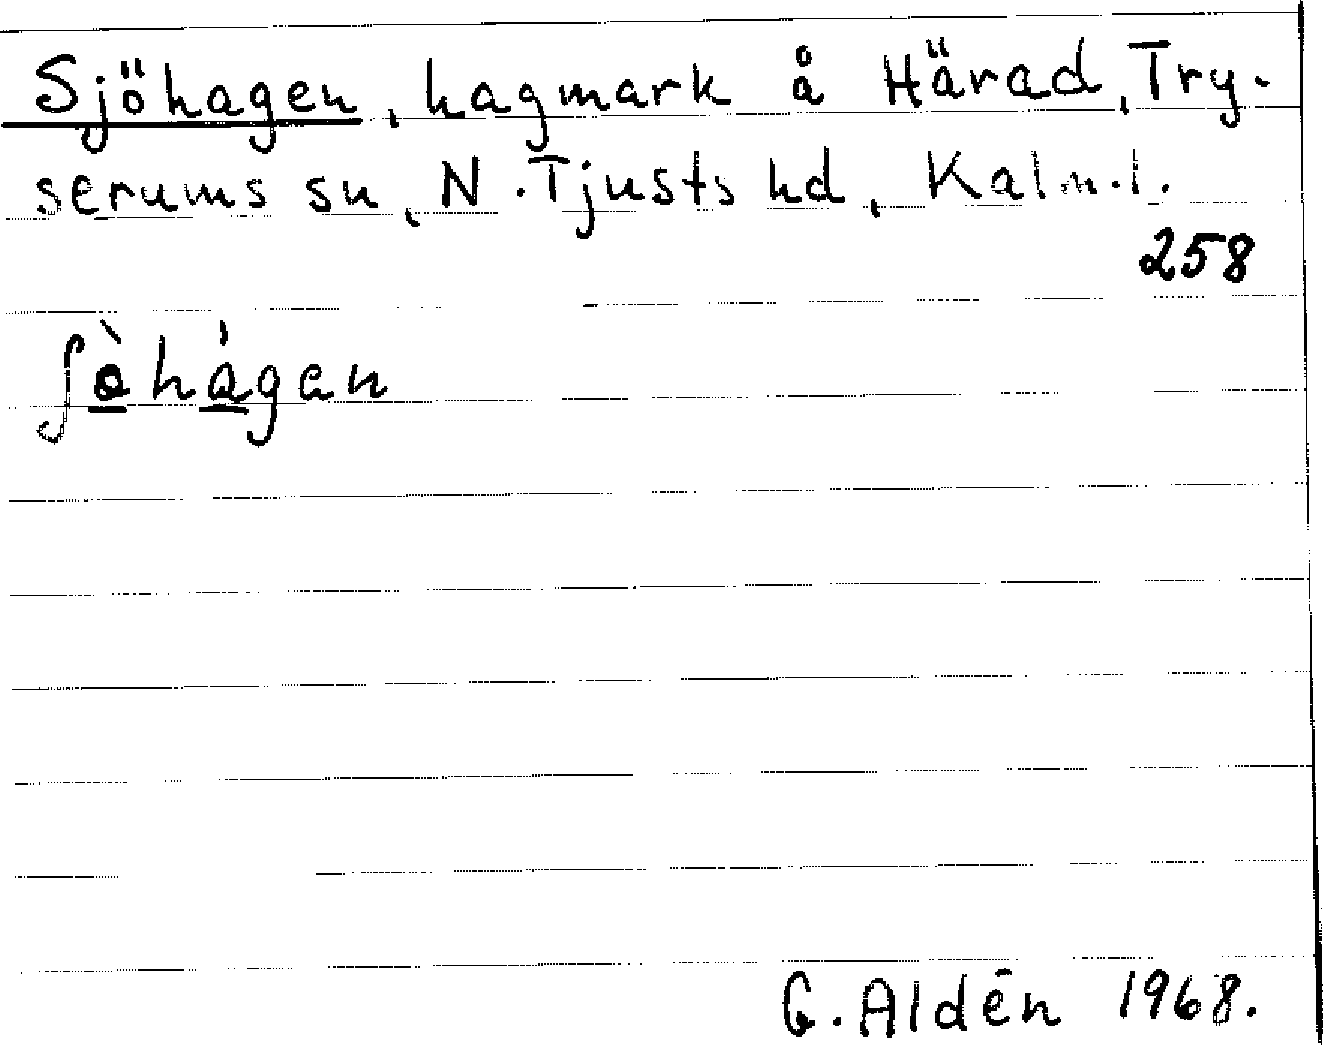 Sjöhagen, hagmark å Härad, Try-
serums sn, N. Tjusts hd, Kalm.l.
258
ʃàhágan
G. Aldén 1968.